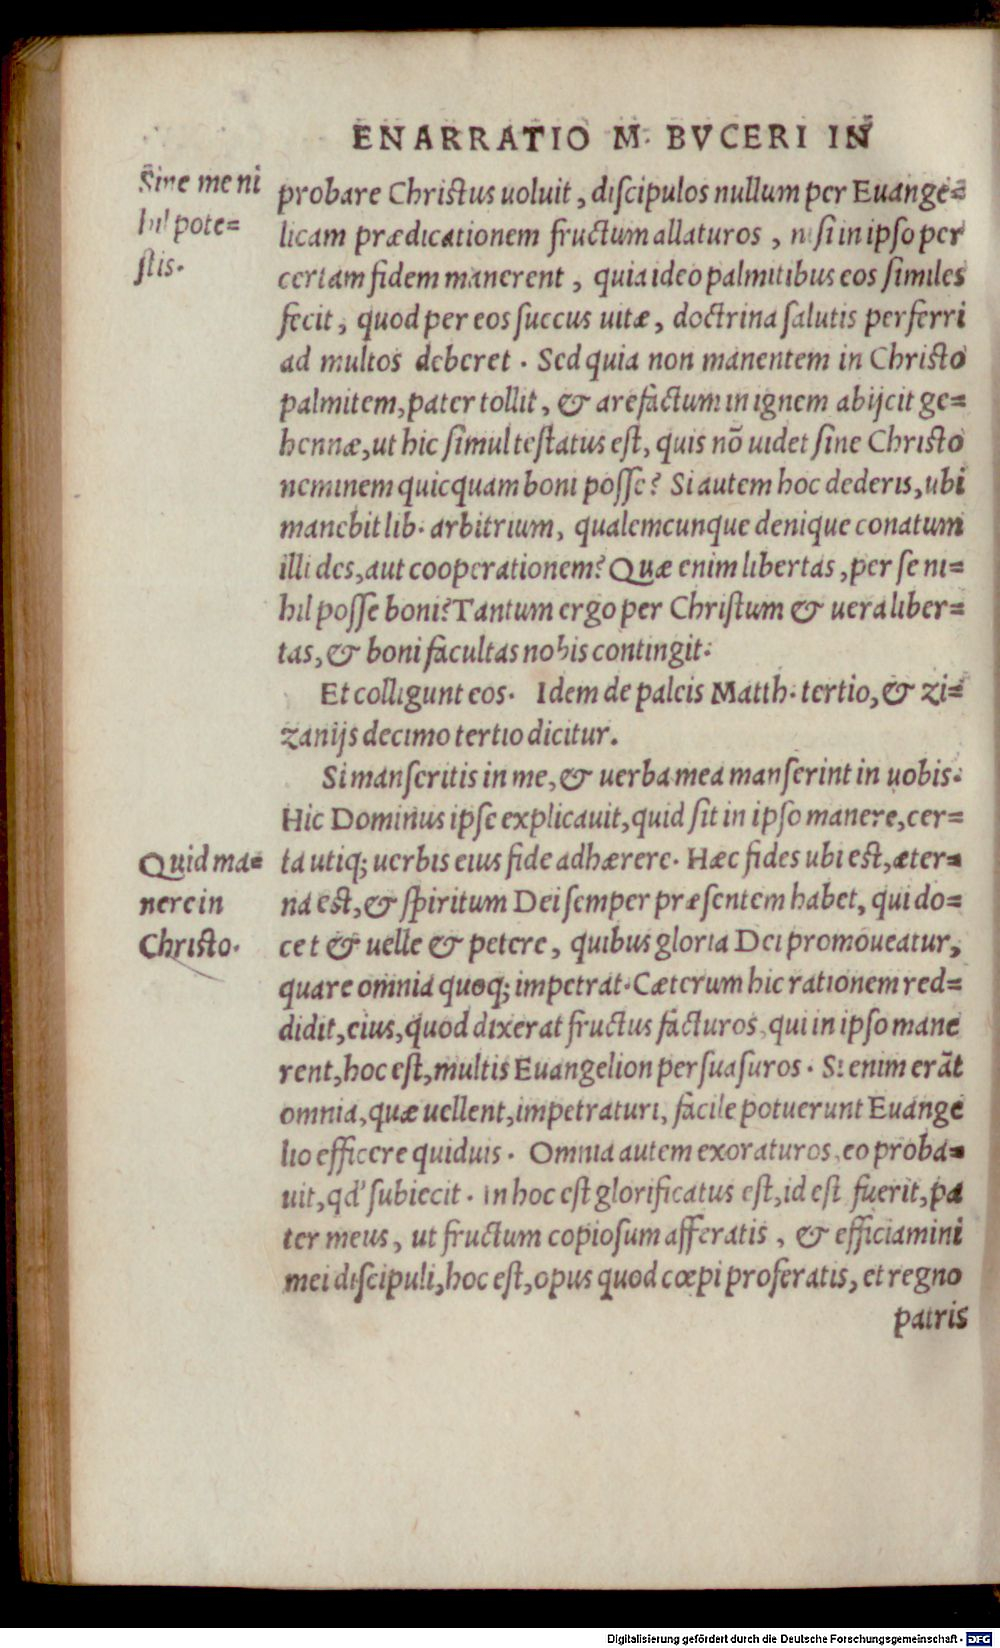 ENARRATIO M. BVCERI IN
Sine me ni
hil pote=
stis.
probare Christus uoluit, discipulos nullum per Euange=
licam prædicationem fructum allaturos, nisi in ipso per
certam fidem manerent, quia ideo palmitibus eos similes
fecit, quod per eos succus uitæ, doctrina salutis perferri
ad multos deberet. Sed quia non manentem in Christo
palmitem, pater tollit, & arefactum in ignem abijcit ge=
hennæ, ut hic simul testatus est, quis nõ uidet sine Christo
neminem quicquam boni posse? Si autem hoc dederis, ubi
manebit lib. arbitrium, qualemcunque denique conatum
illi des, aut cooperationem? Quæ enim libertas, per se ni=
hil posse boni? Tantum ergo per Christum & uera liber=
tas, & boni facultas nobis contingit.
Et colligunt eos. Idem de paleis Matth. tertio, & zi=
zanijs decimo tertio dicitur.
Si manseritis in me, & uerba mea manserint in uobis.
Hic Dominus ipse explicauit, quid sit in ipso manere, cer=
Quid ma=
nere in
Christo.
ta utiq; uerbis eius fide adhærere. Hæc fides ubi est, æter=
na est, & spiritum Dei semper præsentem habet, qui do=
cet & uelle & petere, quibus gloria Dei promoueatur,
quare omnia quoq; impetrat. Cæterum hic rationem red=
didit, eius, quod dixerat fructus facturos, qui in ipso mane
rent, hoc est, multis Euangelion persuasuros. Si enim erãt
omnia, quæ uellent, impetraturi, facile potuerunt Euange
lio efficere quiduis. Omnia autem exoraturos, eo proba=
uit, qd' subiecit. In hoc est glorificatus est, id est fuerit, pa
ter meus, ut fructum copiosum afferatis, & efficiamini
mei discipuli, hoc est, opus quod cœpi proferatis, et regno
patris
Digitalisierung gefördert durch die Deutsche Forschungsgemeinschaft - DFG